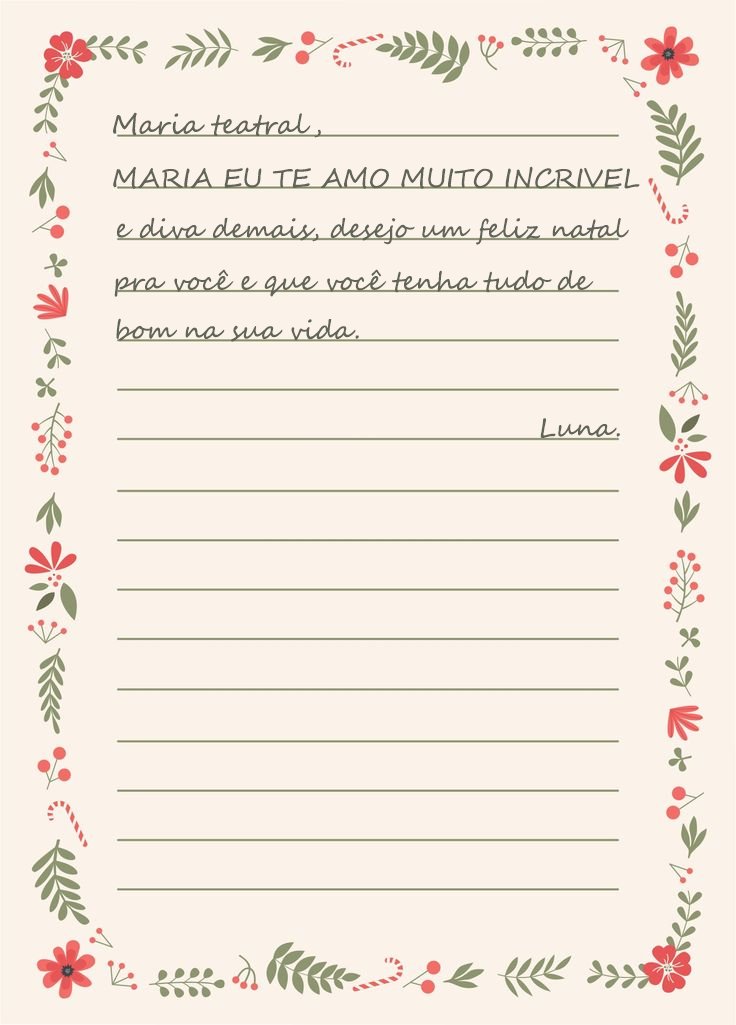 Maria teatral ,
MARIA EU TE AMO MUITO INCRIVEL
e diva demais, desejo um feliz natal
pra você e que você tenha tudo de
bom na sua vida.
Luna.